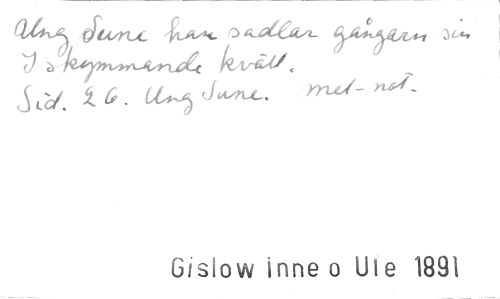 Ung Sune han sadlar gångarn sin
I skymmande kväll.
Sid. 26. Ung Sune. mel-not.
Gislow Inne o Ute 1891